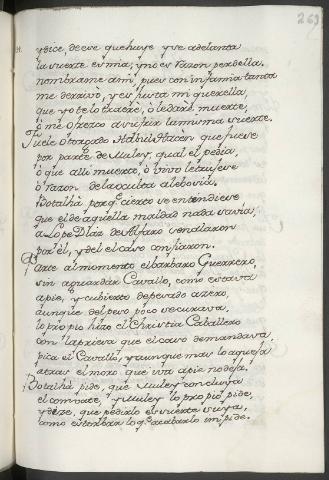 263
y dice, de ese que huye y se adelanta
la suerte es mia, y no es razon perdella.
nombrame a mi, pues con infamia tanta
me derrivo, y es justa mi querella,
que yo te lo traere, ò le daré muerte,
ò me ofrezco a sufrir la misma suerte.
Fuele otorgado Habiul Hacèn que fuese
por parte de Muley, qual el pedia,
ò que alli muerto, ò vivo le truxese
ò razon de la oculta alebosia.
Botalhà porq.e cierto se entendiese
que el de aquella maldad nada savia,
a Lope Diaz de Alfaro señalaron
por èl, y del el caso confiaron.
Parte al momento el bárbaro Guerrero,
sin aguardar Cavallo, como estava
a pie, y cubierto de pesado azero,
aunque del peso poco se curava,
lo propio hizo el Christia Caballero
con la priesa que el caso demandava,
pica el Cavallo, y aunque mas lo aquexa
atras el moro que iva a pie no dexa.
Botalhà pide, que Muley concluya
el combate, y Muley lo propio pide,
y dize, que pedirlo es suerte suya,
como estorbar lo q.e acabarlo impide.